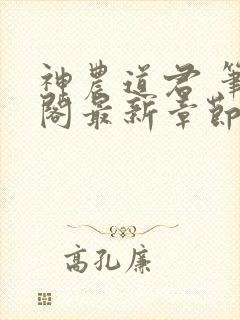 神農道君 筆
閣最新章節
高孔廉